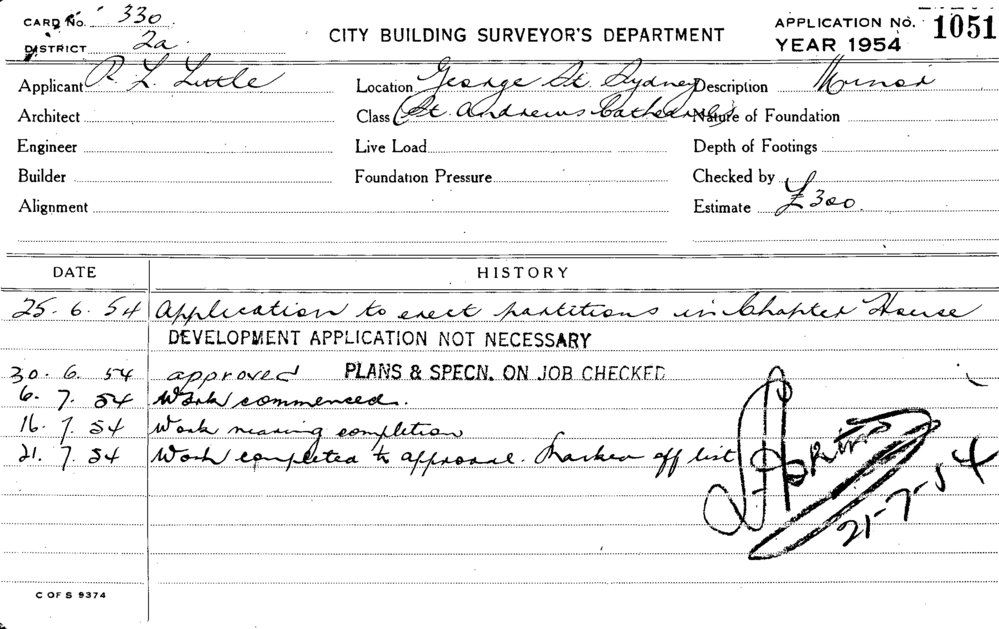 CARD No. 330
DISTRICT 2a
CITY BUILDING SURVEYOR'S DEPARTMENT
APPLICATION No. 1051
YEAR 1954
Applicant R. L. Little Location George St. Sydney Description Minor
Architect Class (St. Andrews Cathedral) Nature of Foundation
Engineer Live Load Depth of Footings
Builder Foundation Pressure Checked by
Alignment Estimate £300.
DATE HISTORY
25. 6. 54 Application to erect partitions in Chapter House
DEVELOPMENT APPLICATION NOT NECESSARY
30. 6. 54 approved PLANS & SPECN. ON JOB CHECKED
6. 7. 54 Work commenced.
16. 7. 54 Work nearing completion
21. 7. 54 Work completed to approval. Marked off list
21-7-54
C OF S 9374